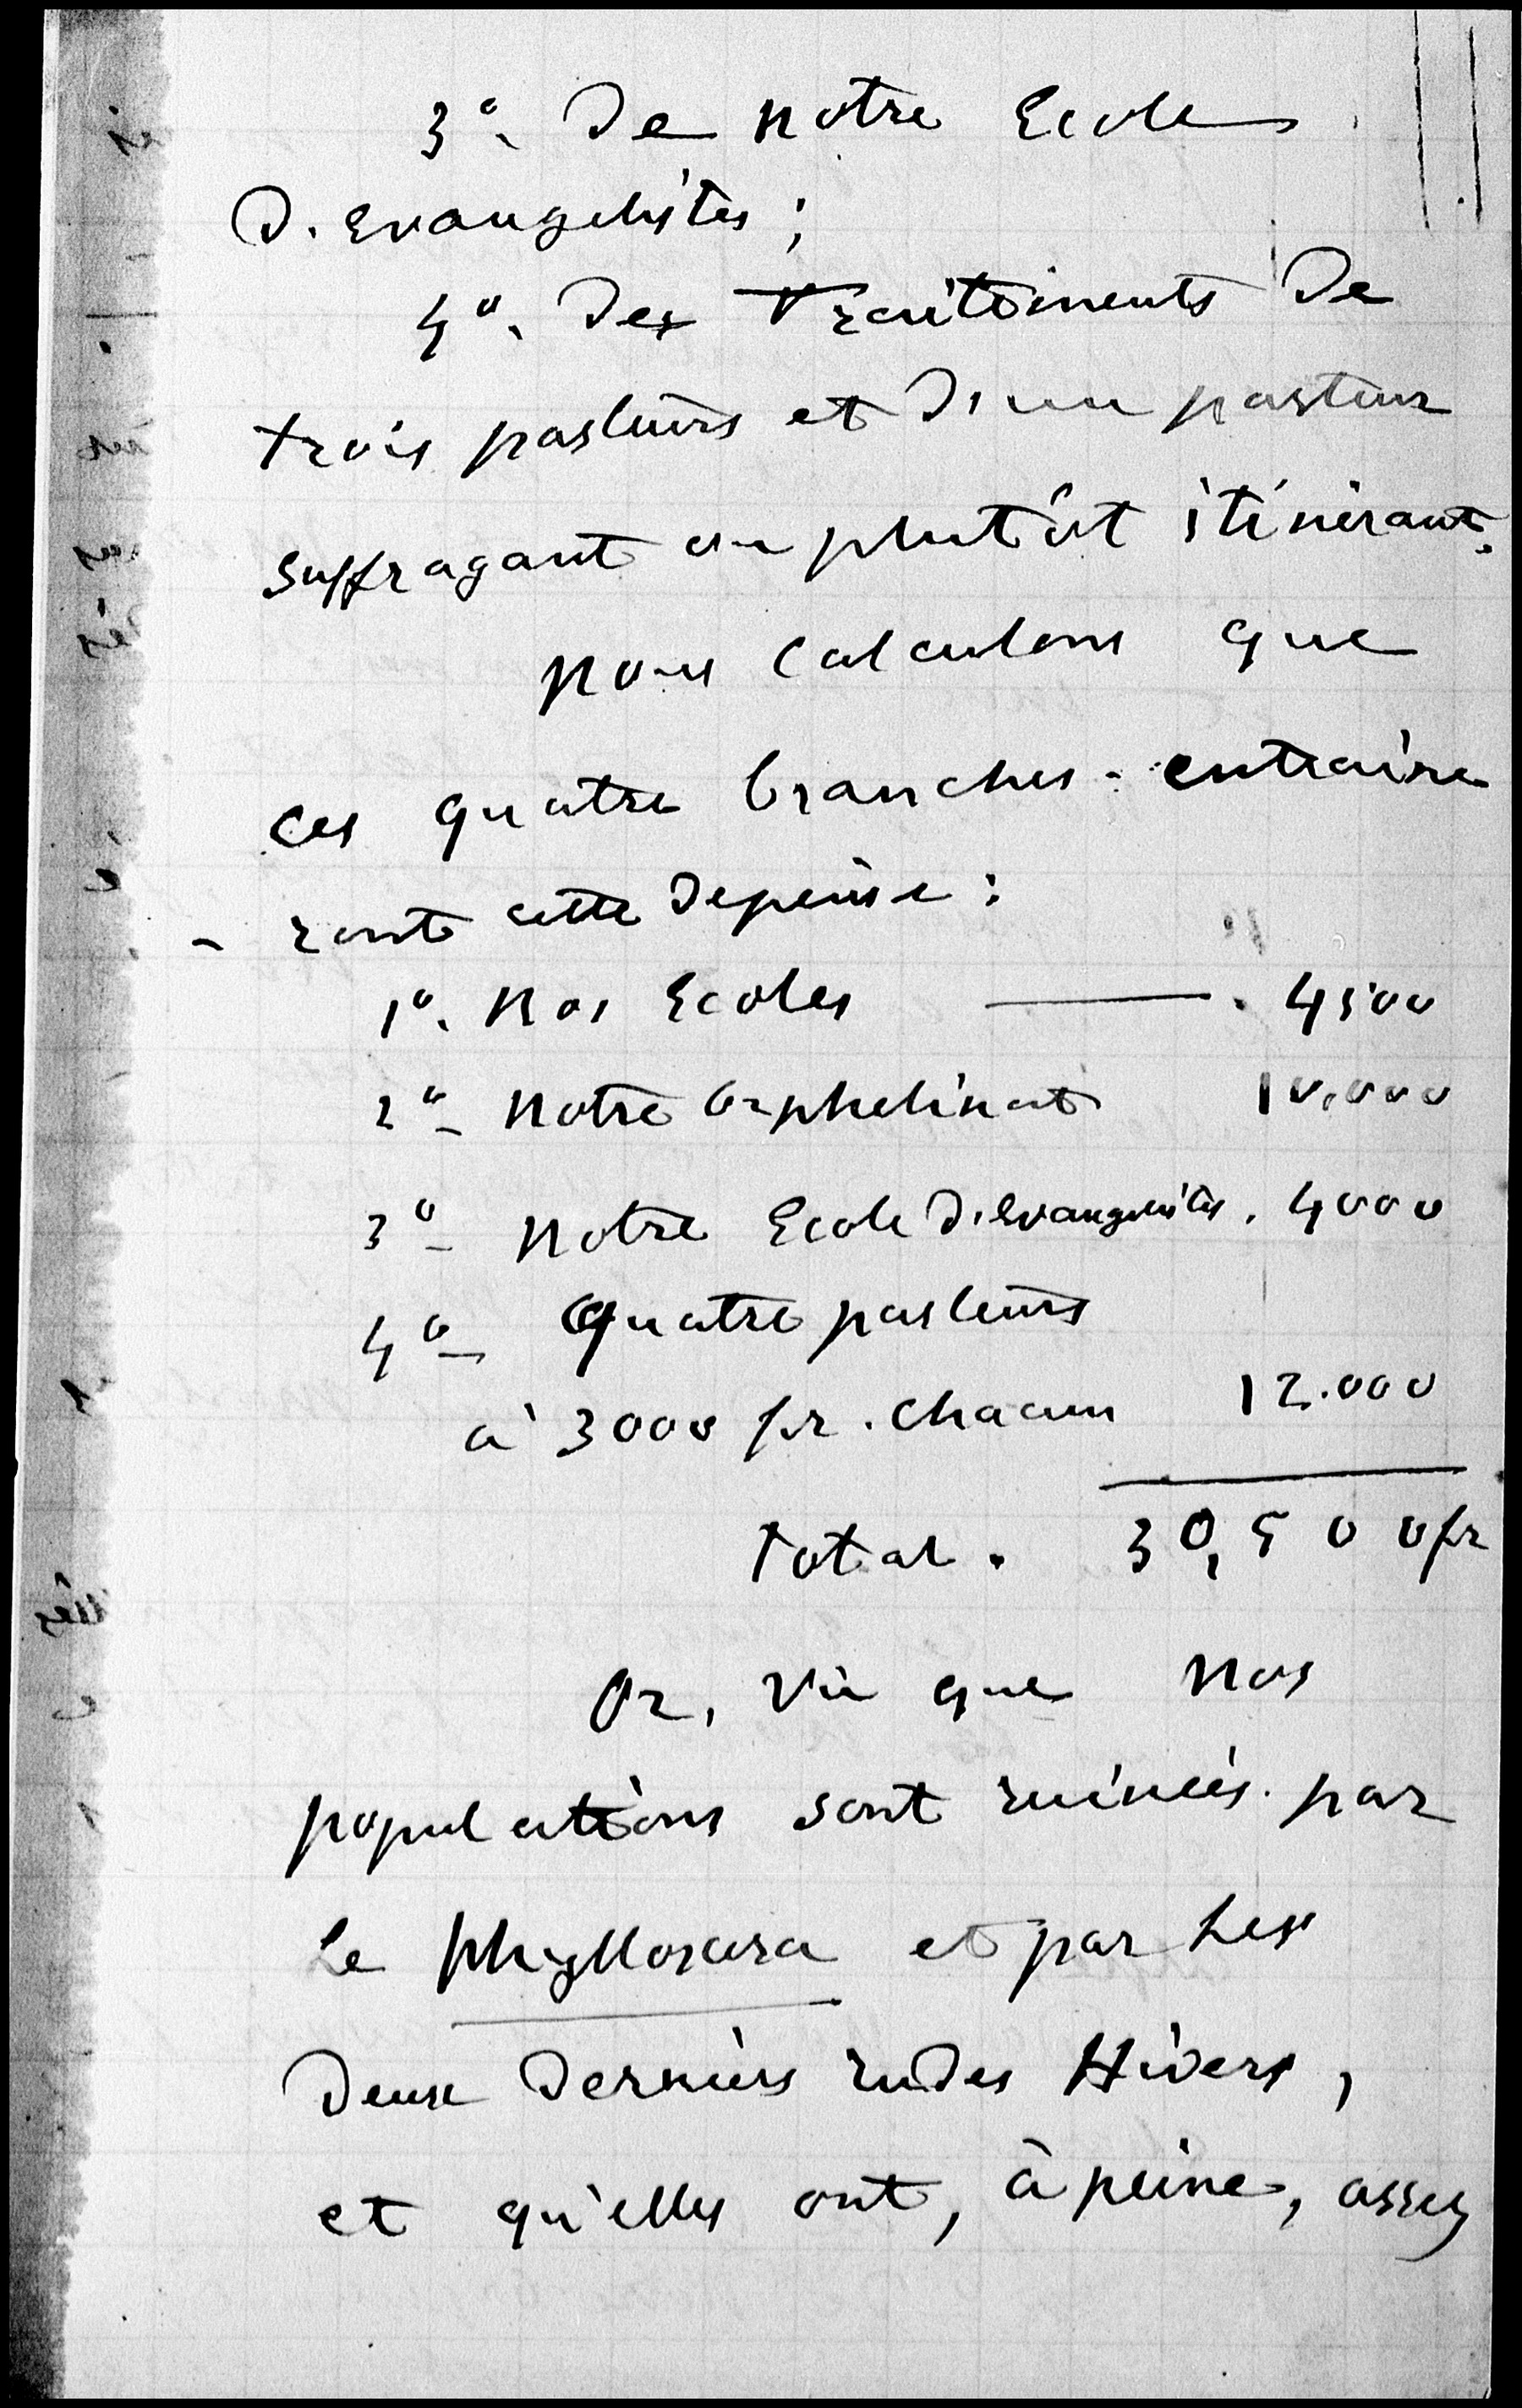 3°. De notre Ecole
D'Evangelistes ;
4°. Des Traitements De
trois pasteurs et D'un pasteur
suffragant ou plutôt itinérant.
nous calculons que
ces quatre branches entraine
- ront cette Depense :
1°. Nos Ecoles ——— . 4500
2°- Notre Orphelinat 10.000
3°- Notre Ecole D'Evangelistes . 4000
4°- Quatre pasteurs
à 3000 fr. chacun 12.000
Total . 30,500 fr
Or, vû que nos
populations sont ruinées par
Le phylloxera et par Les
Deux Derniers rudes Hivers ,
et qu'elles ont, à peine, assez